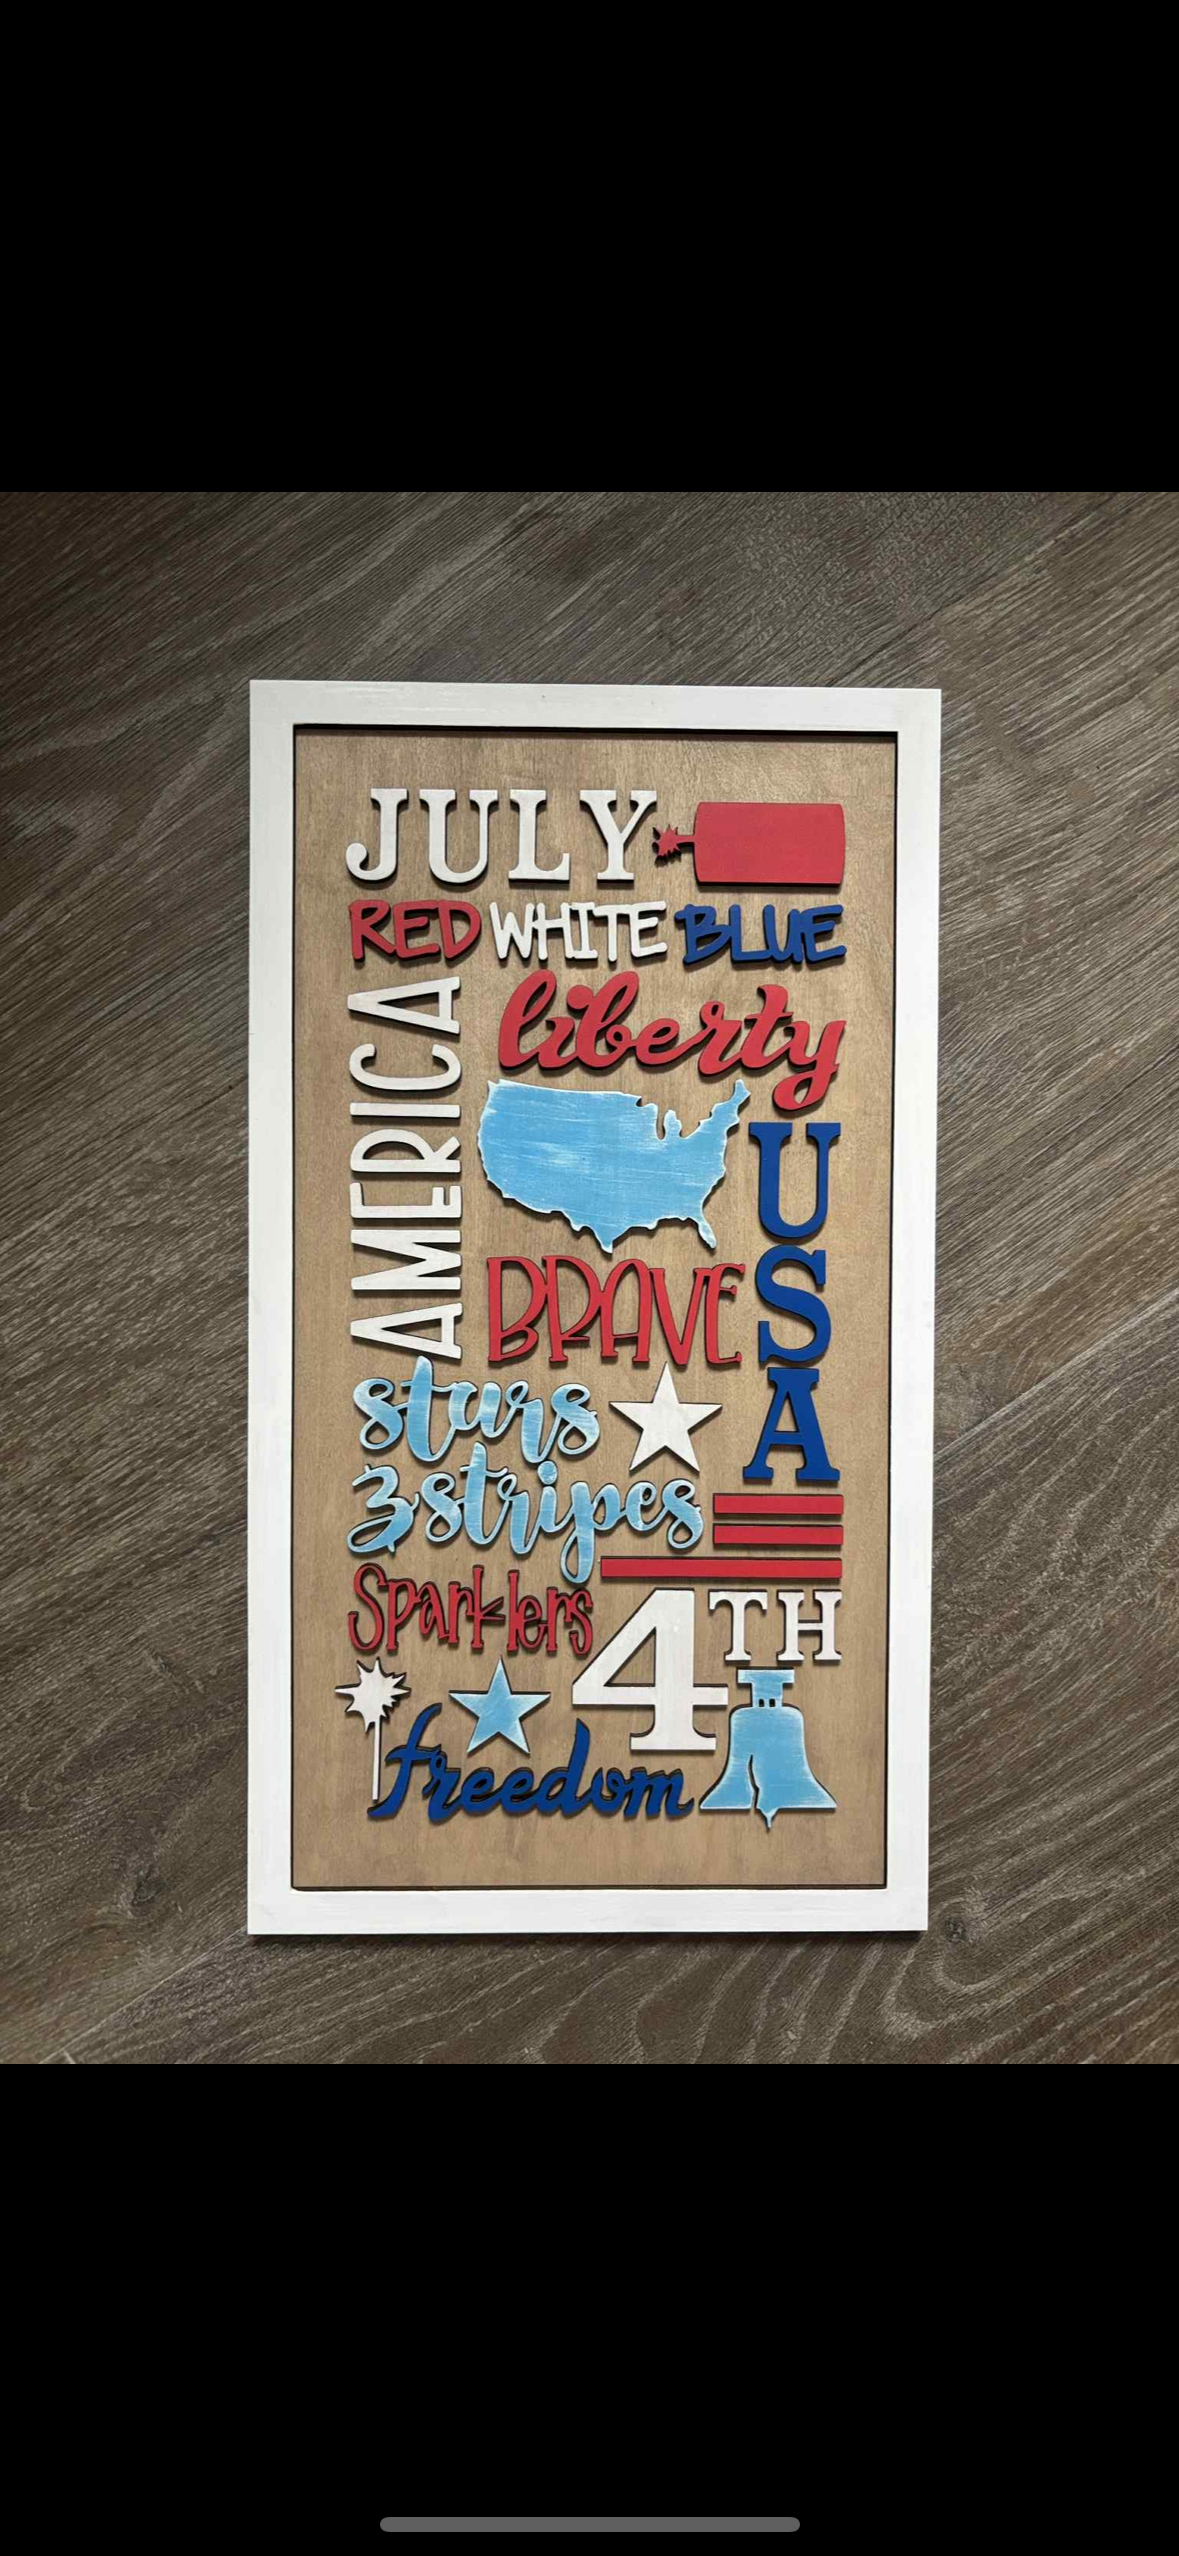 JULY
RED WHITE BLUE
AMERICA
liberty
USA
BRAVE
stars
& stripes
Sparklers
4TH
freedom